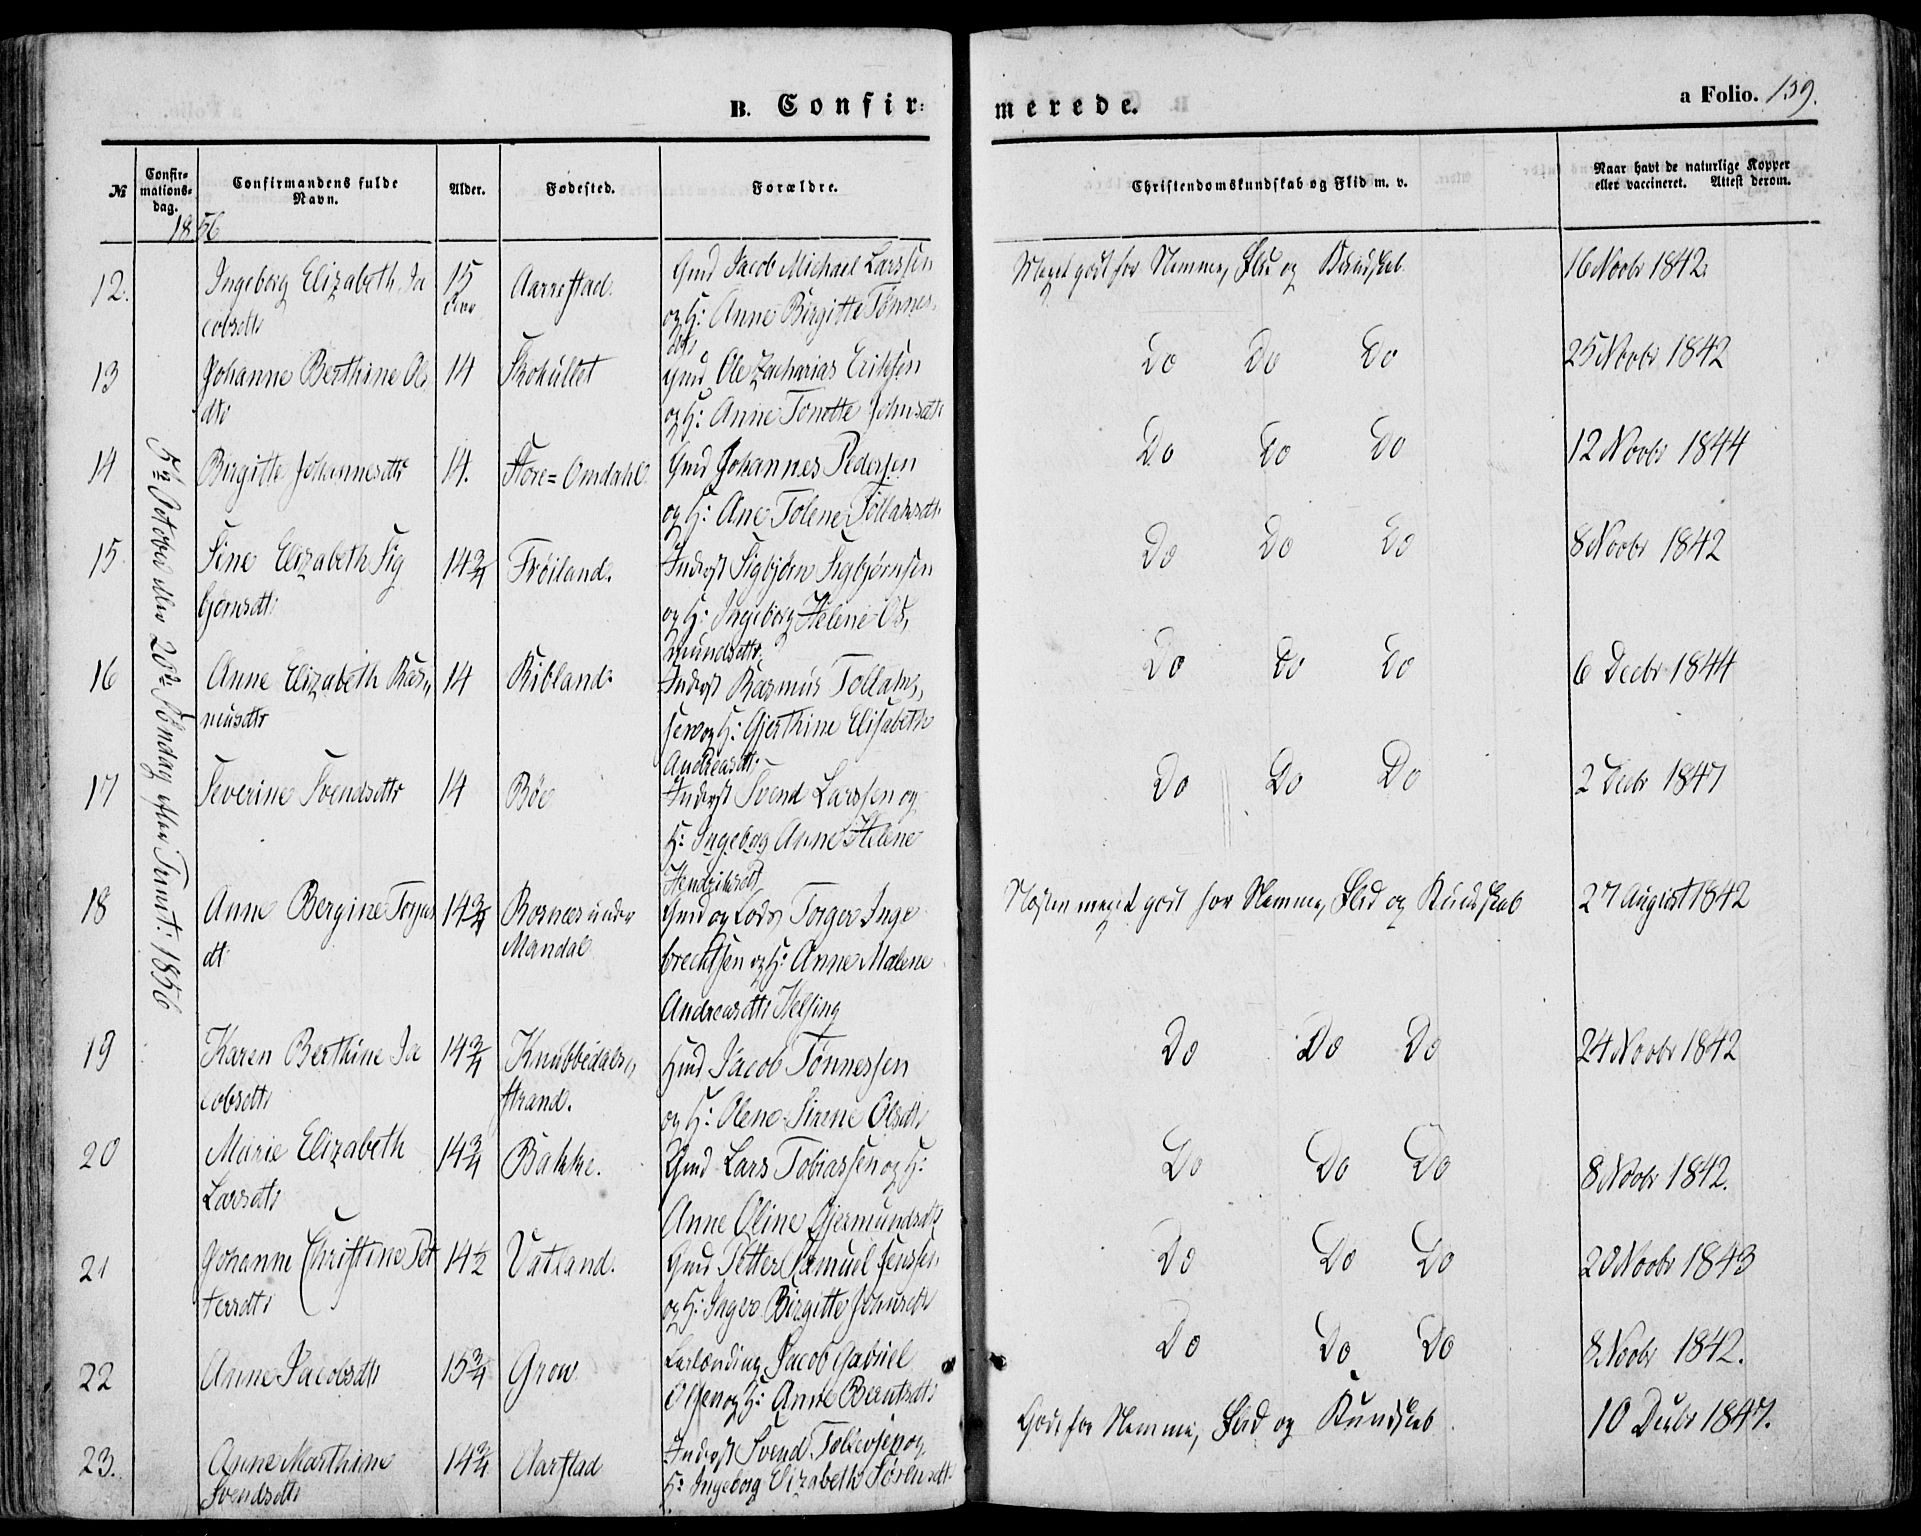 B. Confir=
merede.
a Folio. 159.
№
Confir-
mations-
dag.
Confirmandens fulde
Navn.
Alder.
Fødested.
Forældre.
Christendomskundskab og Flid m. v.
Naar havt de naturlige Kopper
eller vaccineret. Attest derom.
1856
5te October 20de Søndag efter Trinit: 1856
12.
Ingeborg Elizabeth Ja
cobsdtr
15
Aar
Aarrestad.
Gmd Jacob Michael Larssen
og H: Anne Birgitte Tønnes-
dtr
Meget godt for Nemme, Flid og Kundskab
16 Novbr 1842.
13
Johanne Berthine Ols
dtr
14
Skohüllet
Gmd Ole Zacharias Eriksen
og H: Anne Tonette Johnsdtr
Do Do Do
25 Novbr 1842
14
Birgitte Johannesdtr
14.
Store=Omdahl.
Gmd Johannes Pedersen
og H: Ane Tolene Tollaksdtr
Do Do Do
12 Novbr 1844
15
Sine Elizabeth Sig
bjørnsdtr
14 3/4
Frøiland.
Inderst Sigbjørn Sigbjørnsen
og H: Ingeborg Helene Os,
mundsdtr.
Do Do Do
8 Novbr 1842
16
Anne Elizabeth Ras,,
musdtr
14
Ribland:
Inderst Rasmus Tollaks,,
sen og H: Gjerthine Elisabeth
Andreasdtr
Do Do Do
6 Decbr 1844
17
Severine Svendsdtr
14
Bøe
Inderst Svend Larssen og
H: Ingeborg Anne Helene
Hendriksdtr
Do Do Do
2 Decbr 1847
18
Anne Bergine Torjus
dt
14 3/4
Rosnæs under
Mandal
Gmd og Lods Torger Inge
brechtsen og H: Anne Malene
Andreasdtr Helsing
Næsten meget godt for Nemme, Flid og Kundskab
27 August 1842
19
Karen Berthine Ja
cobsdtr
14 3/4
Knubbedals,,
strand.
Hmd Jacob Tønnessen
og H: Olene Sirene Olsdtr
Do Do Do
24 Novbr 1842
20
Marie Elizabeth
Larsdtr
14 3/4
Bakke.
Gmd Lars Tobiassen og H:
Anne Oline Gjermundsdtr
Do Do Do
8 Novbr 1842.
21
Johanne Christine Pet
tersdtr
14 1/2
Vatland.
Gmd Petter Samuel Jenssen
og H: Inger Birgitte Jonsdtr
Do Do Do
20 Novbr 1843
22
Anne Jacobsdtr
15 3/4
Grow
Jacob Gabriel
Olsen og H: Anne Berntsdtr
Do Do Do
8 Novbr 1842.
23.
Anne Marthine
Svendsdtr
14 3/4
Aarstad
Inderst Svend Tollevsen og
H: Ingeborg Elizabeth Sørensdtr
Godt for Nemme, Flid og Kundskab
10 Decbr 1847.